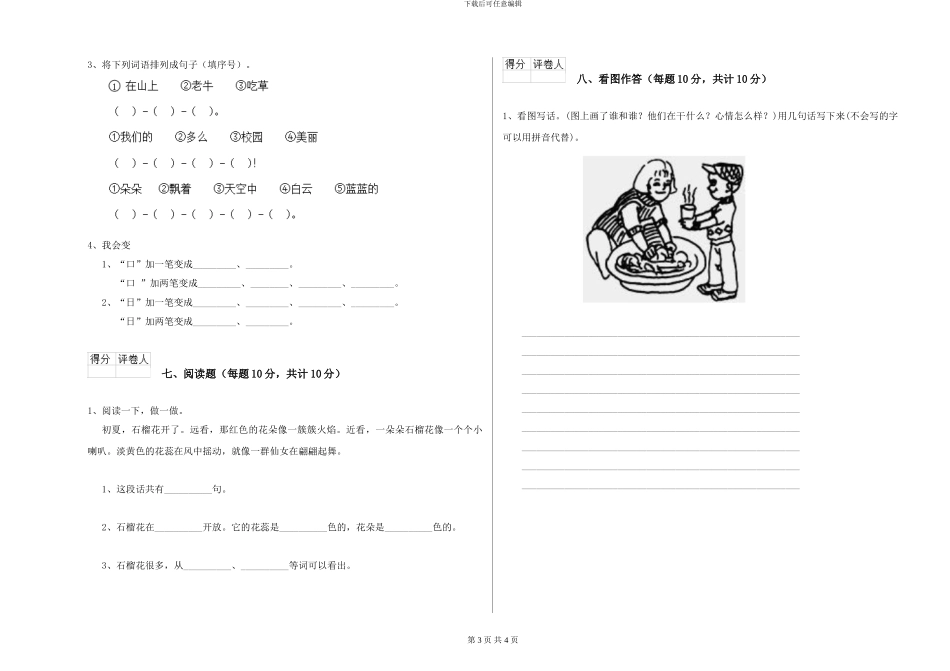 下载后可任意编辑
3、将下列词语排列成句子（填序号）。
① 在山上 ②老牛 ③吃草
（ ）－（ ）－（ ）。
①我们的 ②多么 ③校园 ④美丽
（ ）－（ ）－（ ）－（ ）！
①朵朵 ②飘着 ③天空中 ④白云 ⑤蓝蓝的
（ ）－（ ）－（ ）－（ ）－（ ）。
4、我会变
1、“口”加一笔变成_________、_________。
“口 ”加两笔变成_________、________、_________、_________。
2、“日”加一笔变成_________、_________、_________、_________。
“日”加两笔变成_________、_________。
得分 评卷人
七、阅读题（每题 10 分，共计 10 分）
1、阅读一下，做一做。
初夏，石榴花开了。远看，那红色的花朵像一簇簇火焰。近看，一朵朵石榴花像一个个小
喇叭。淡黄色的花蕊在风中摇动，就像一群仙女在翩翩起舞。
1、这段话共有__________句。
2、石榴花在__________开放。它的花蕊是__________色的，花朵是__________色的。
3、石榴花很多，从__________、__________等词可以看出。
得分 评卷人
八、看图作答（每题 10 分，共计 10 分）
1、看图写话，(图上画了谁和谁？他们在干什么？心情怎么样？)用几句话写下来(不会写的字
可以用拼音代替)。
第 3 页 共 4 页